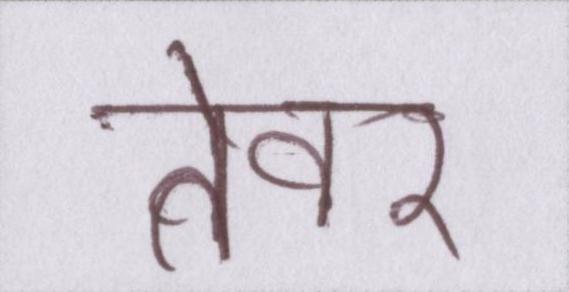 तेवर